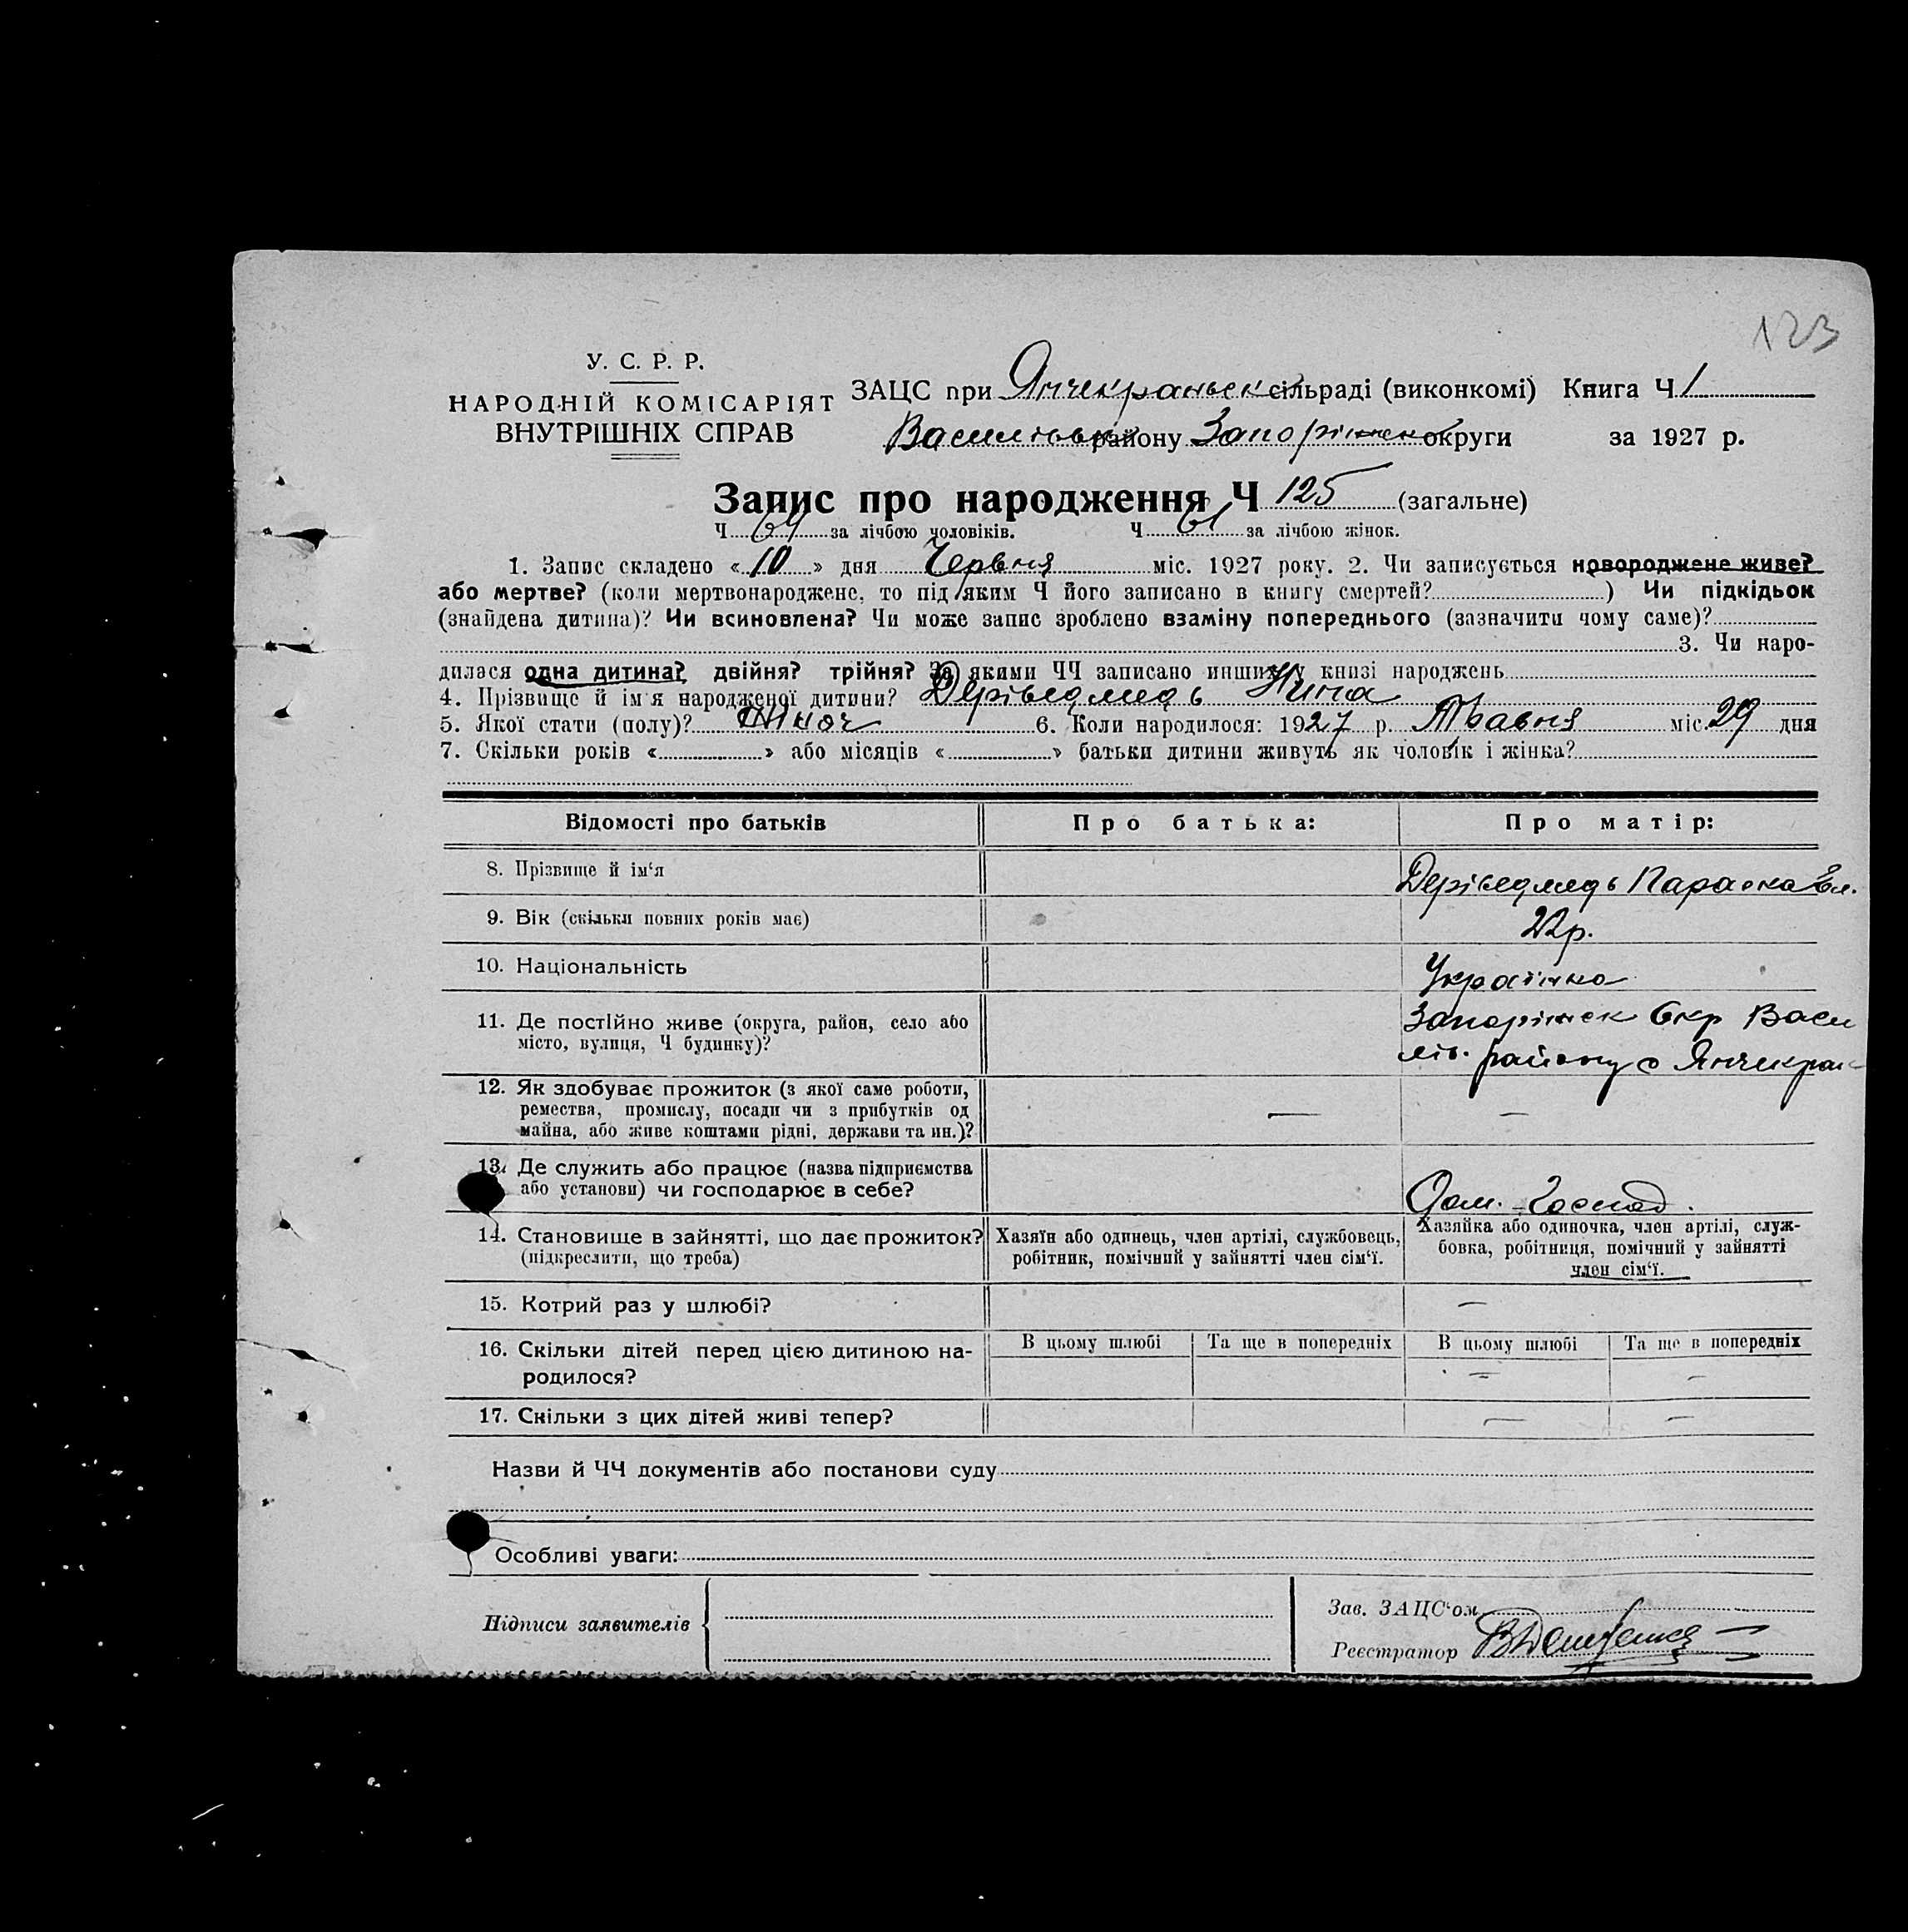 123
У. С. Р. Р.
НАРОДНІЙ КОМІСАРІЯТ
ВНУТРІШНІХ СПРАВ
ЗАЦС при Янчекраньск сільраді (виконкомі) Книга Ч 1
Васильовськ району Запоріжськ округи за 1927 р.
Запис про народження Ч 125 (загальне)
Ч 64 за лічбою чоловіків. Ч 61 за лічбою жінок.
1. Запис складено « 10 » дня Червня міс. 1927 року. 2. Чи записується новороджене живе?
або мертве? (коли мертвонароджене, то під яким Ч його записано в книгу смертей? ) Чи підкідьок
(знайдена дитина)? Чи всиновлена? Чи може запис зроблено взаміну попереднього (зазначити чому саме)?
3. Чи наро-
дилася одна дитина? двійня? трійня? За якими ЧЧ записано инших у книзі народжень
4. Прізвище й ім'я народженої дитини? Деріведмедь Нина
5. Якої стати (полу)? Жіноч 6. Коли народилося: 1927 р. Травня міс. 29 дня
7. Скільки років « » або місяців « » батьки дитини живуть як чоловік і жінка?
Відомості про батьків Про батька: Про матір:
8. Прізвище й ім‘я Деріведмедь Параска
9. Вік (скільки повних років має) 22р.
10. Національність Українка
11. Де постійно живе (округа, район, село або Запоріжск Окр Васи
місто, вулиця, Ч будинку)? лів. району с Янчекрак
12. Як здобуває прожиток (з якої саме роботи,
ремества, промислу, посади чи з прибутків од — —
майна, або живе коштами рідні, держави та ин.)?
13. Де служить або працює (назва підприємства
або установи) чи господарює в себе? Дом. Господ.
14. Становище в зайнятті, що дає прожиток? Хазяїн або одинець, член артілі, службовець, Хазяйка або одиночка, член артілі, служ-
(підкреслити, що треба) робітник, помічний у зайнятті член сім‘ї. бовка, робітниця, помічний у зайнятті
член сім‘ї.
15. Котрий раз у шлюбі? —
16. Скільки дітей перед цією дитиною на- В цьому шлюбі Та ще в попередніх В цьому шлюбі Та ще в попередніх
родилося? — —
17. Скільки з цих дітей живі тепер? — —
Назви й ЧЧ документів або постанови суду
Особливі уваги:
Підписи заявителів
Зав. ЗАЦС‘ом
Реєстратор